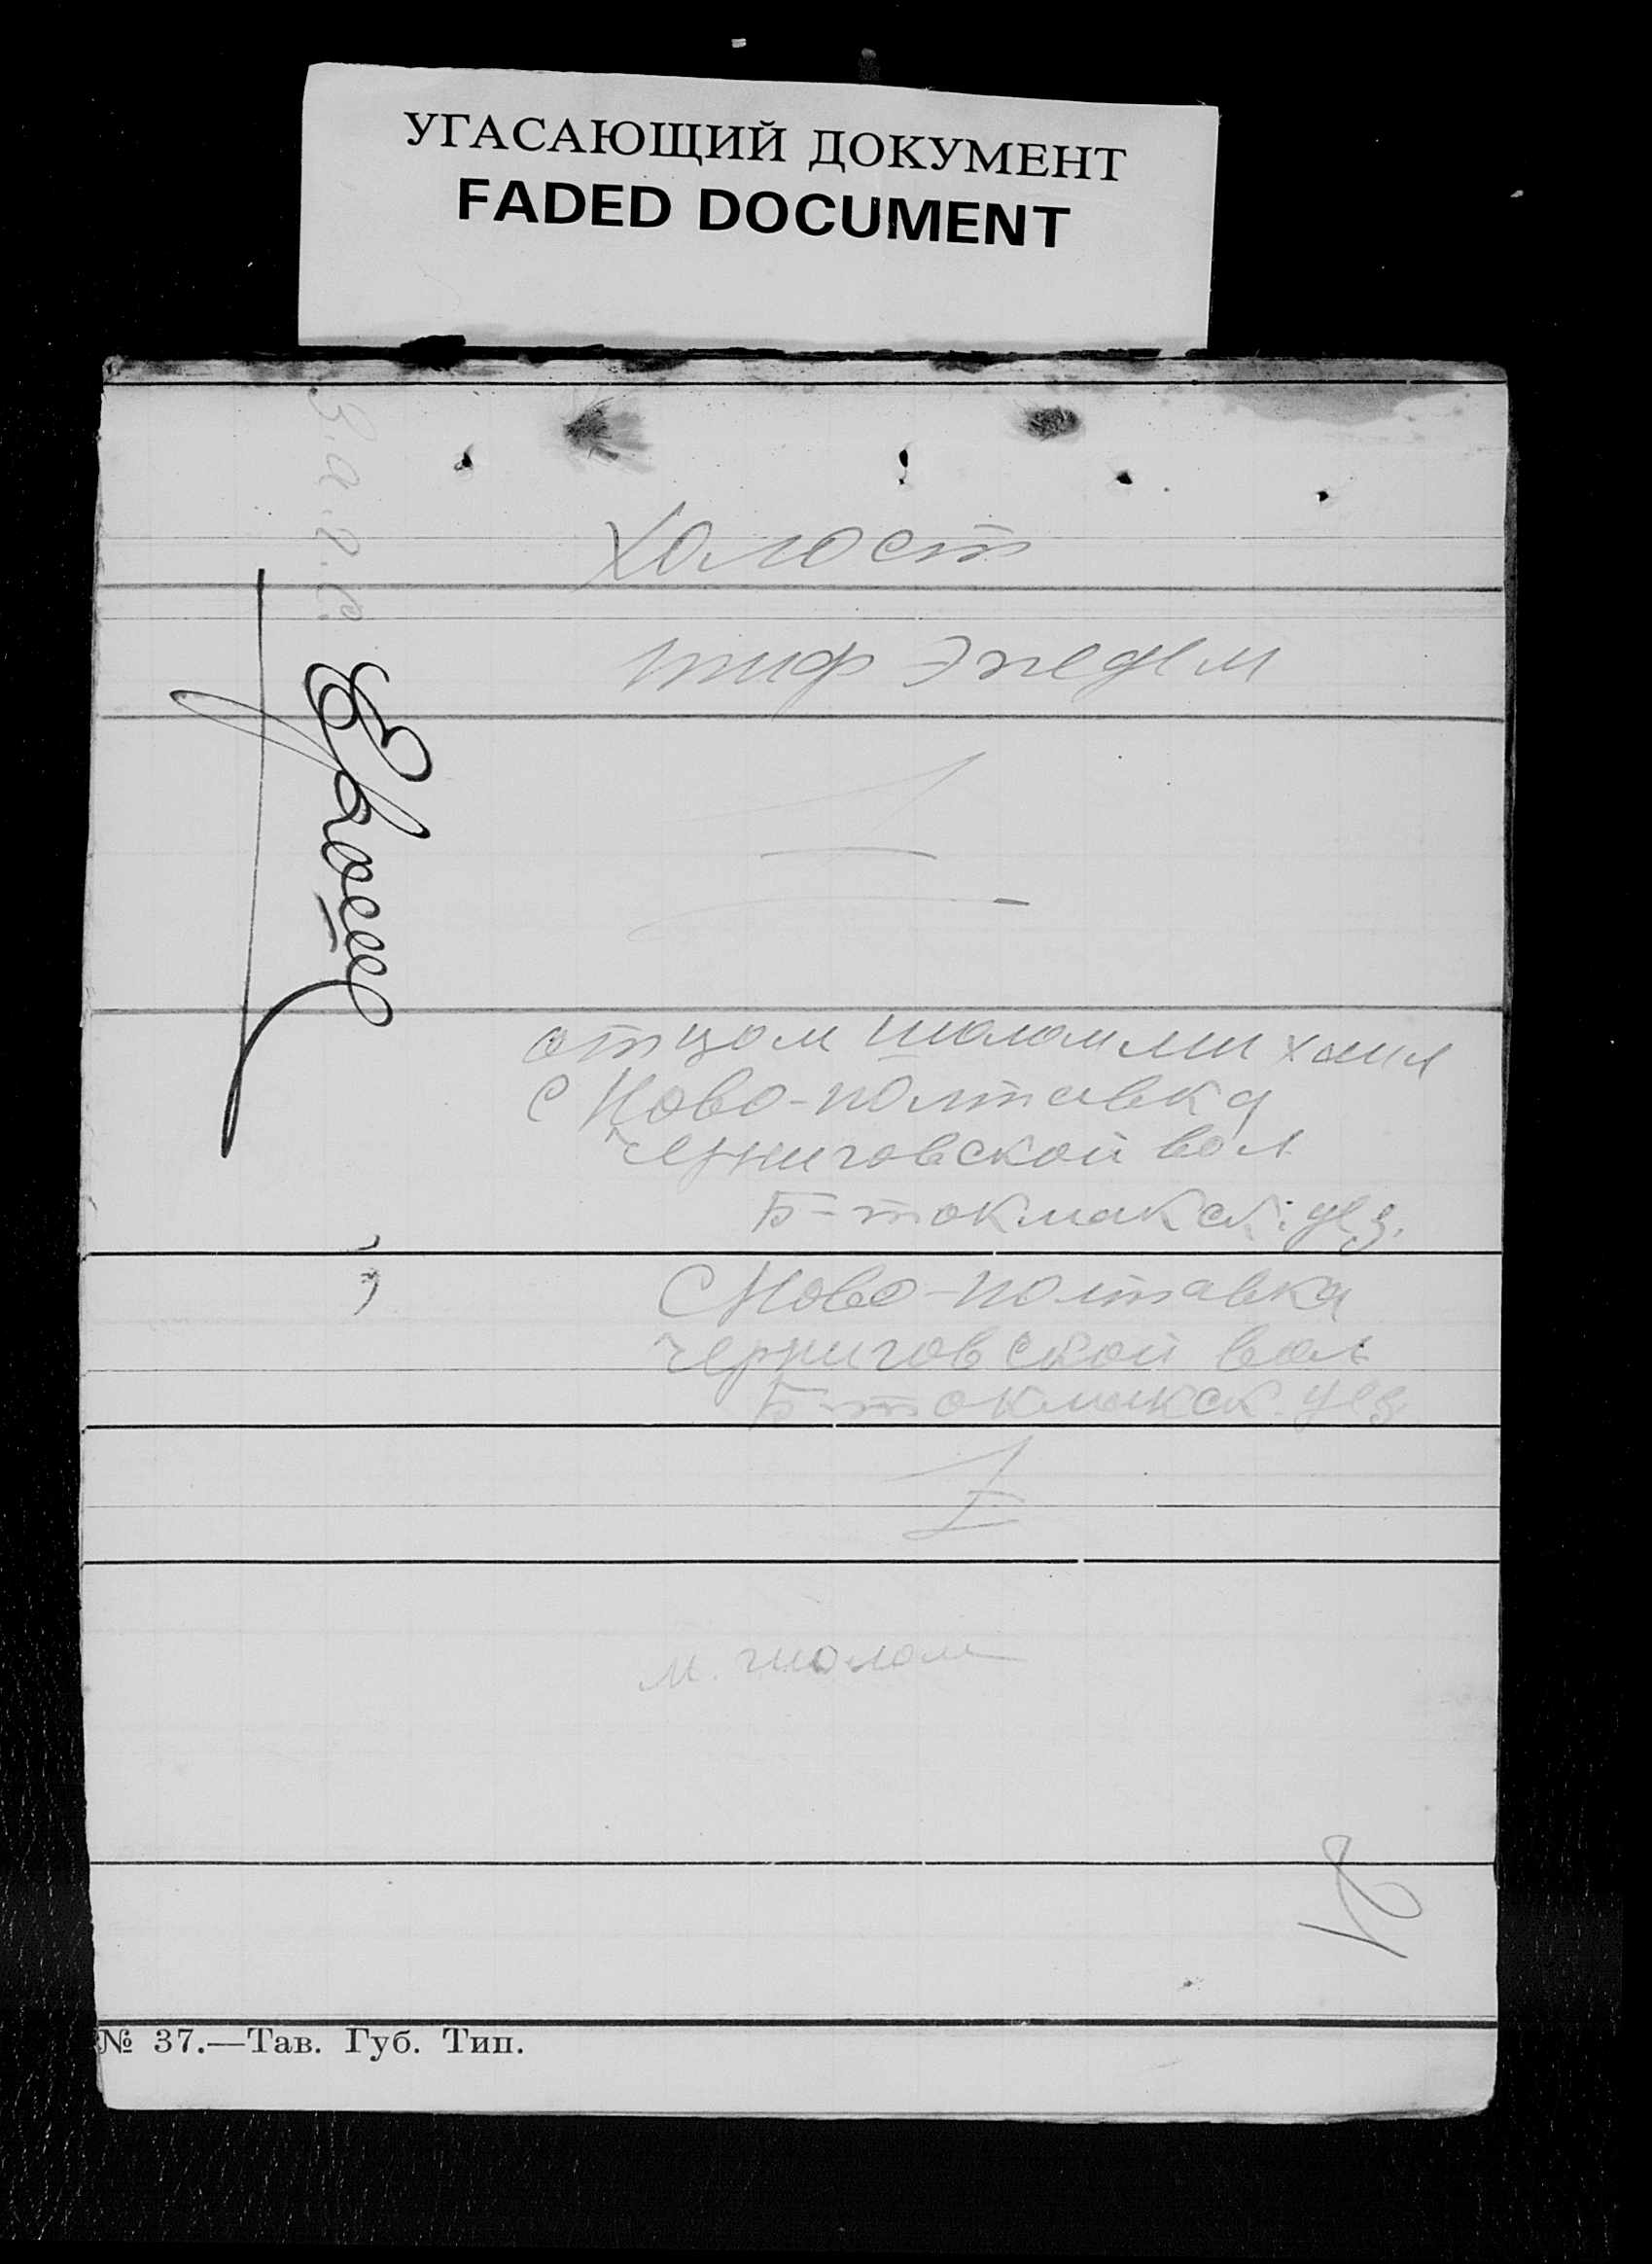 УГАСАЮЩИЙ ДОКУМЕНТ
FADED DOCUMENT
З.а.г.с.
холост
тиф эпедем
отцом шолом михаил
с Ново-полтавка
черниговской вол
Б-токмакск. уез.
С Ново-полтавка
черниговской вол
Б-токмакск. уез
м. шолом
21
№ 37.—Тав. Губ. Тип.